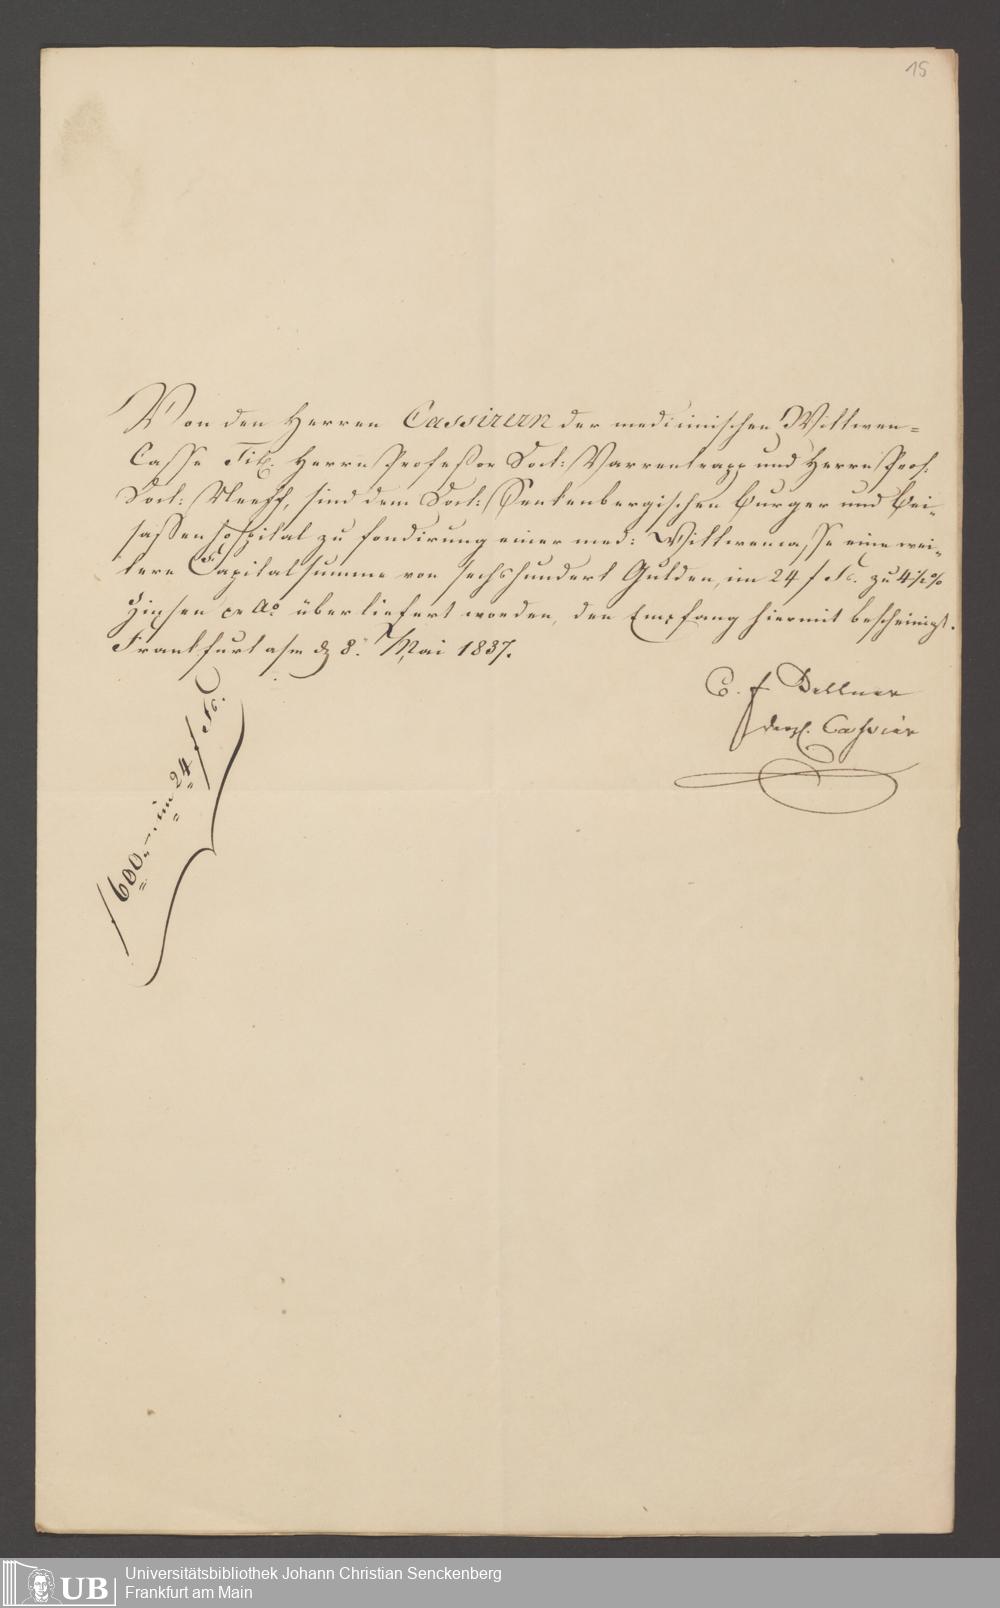 15
Von den Herren Cassirern der medicinischen Wittwen=
Casse Tit. Herrn Profeßor Doct: Varrentrapp und Herrn Prof.
Doct: Neeff, sind dem Doct: Senkenbergischen Burger und Bei=
sassenhospital zu fondirung einer med: Wittwencasse eine wei=
tere Capitalsumme von sechshundert Gulden, im 24 f Fs. zu 4½%
Zinsen pr Ao. überliefert worden, den Empfang hiermit bescheinigt.
Frankfurt a/m d 8. Mai 1837.
C. F. Dellner
Cassier
f 600.-. im 24 f Fs.
UB Universitätsbibliothek Johann Christian Senckenberg
Frankfurt am Main